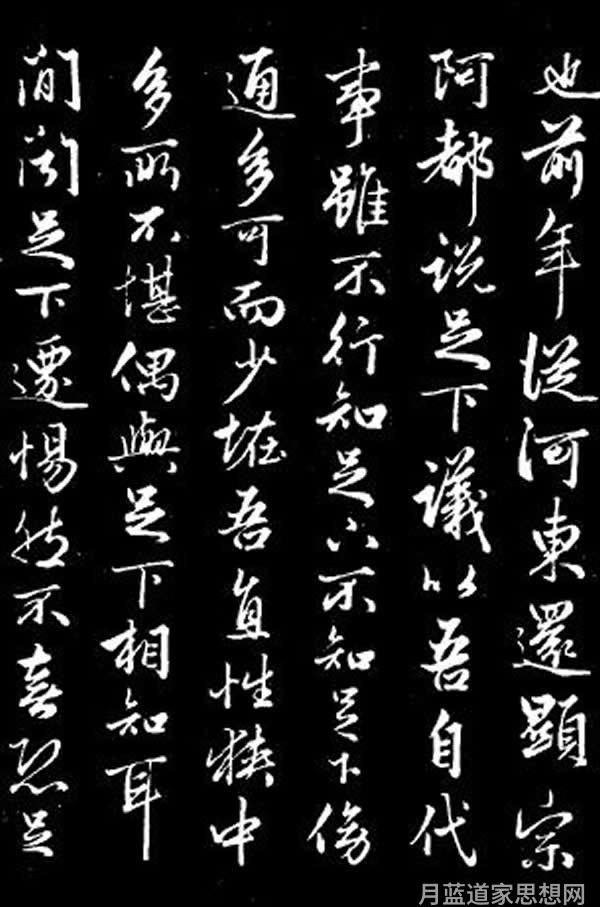 也前年從河東還顯宗
阿都說足下議以吾自代
事雖不行知足下不知足下傍
通多可而少怪吾直性狹中
多所不堪偶與足下相知耳
間聞足下遷惕然不喜恐足
月蓝道家思想网